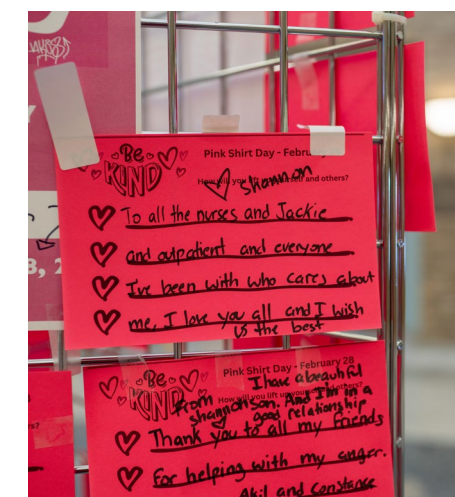 Be
KIND
Pink Shirt Day - Febru
How will you lift up yourself and others?
Shannon
To all the nurses and Jackie
and outpatient and everyone
I've been with who cares about
me, I love you all and I wish
us the best
Be
KIND
Pink Shirt Day - February 28
How will you lift up others?
I have a beautiful
From
shannon son. And I'm in a
good relationship
Thank you to all my friends
for helping with my anger.
Akil and constance